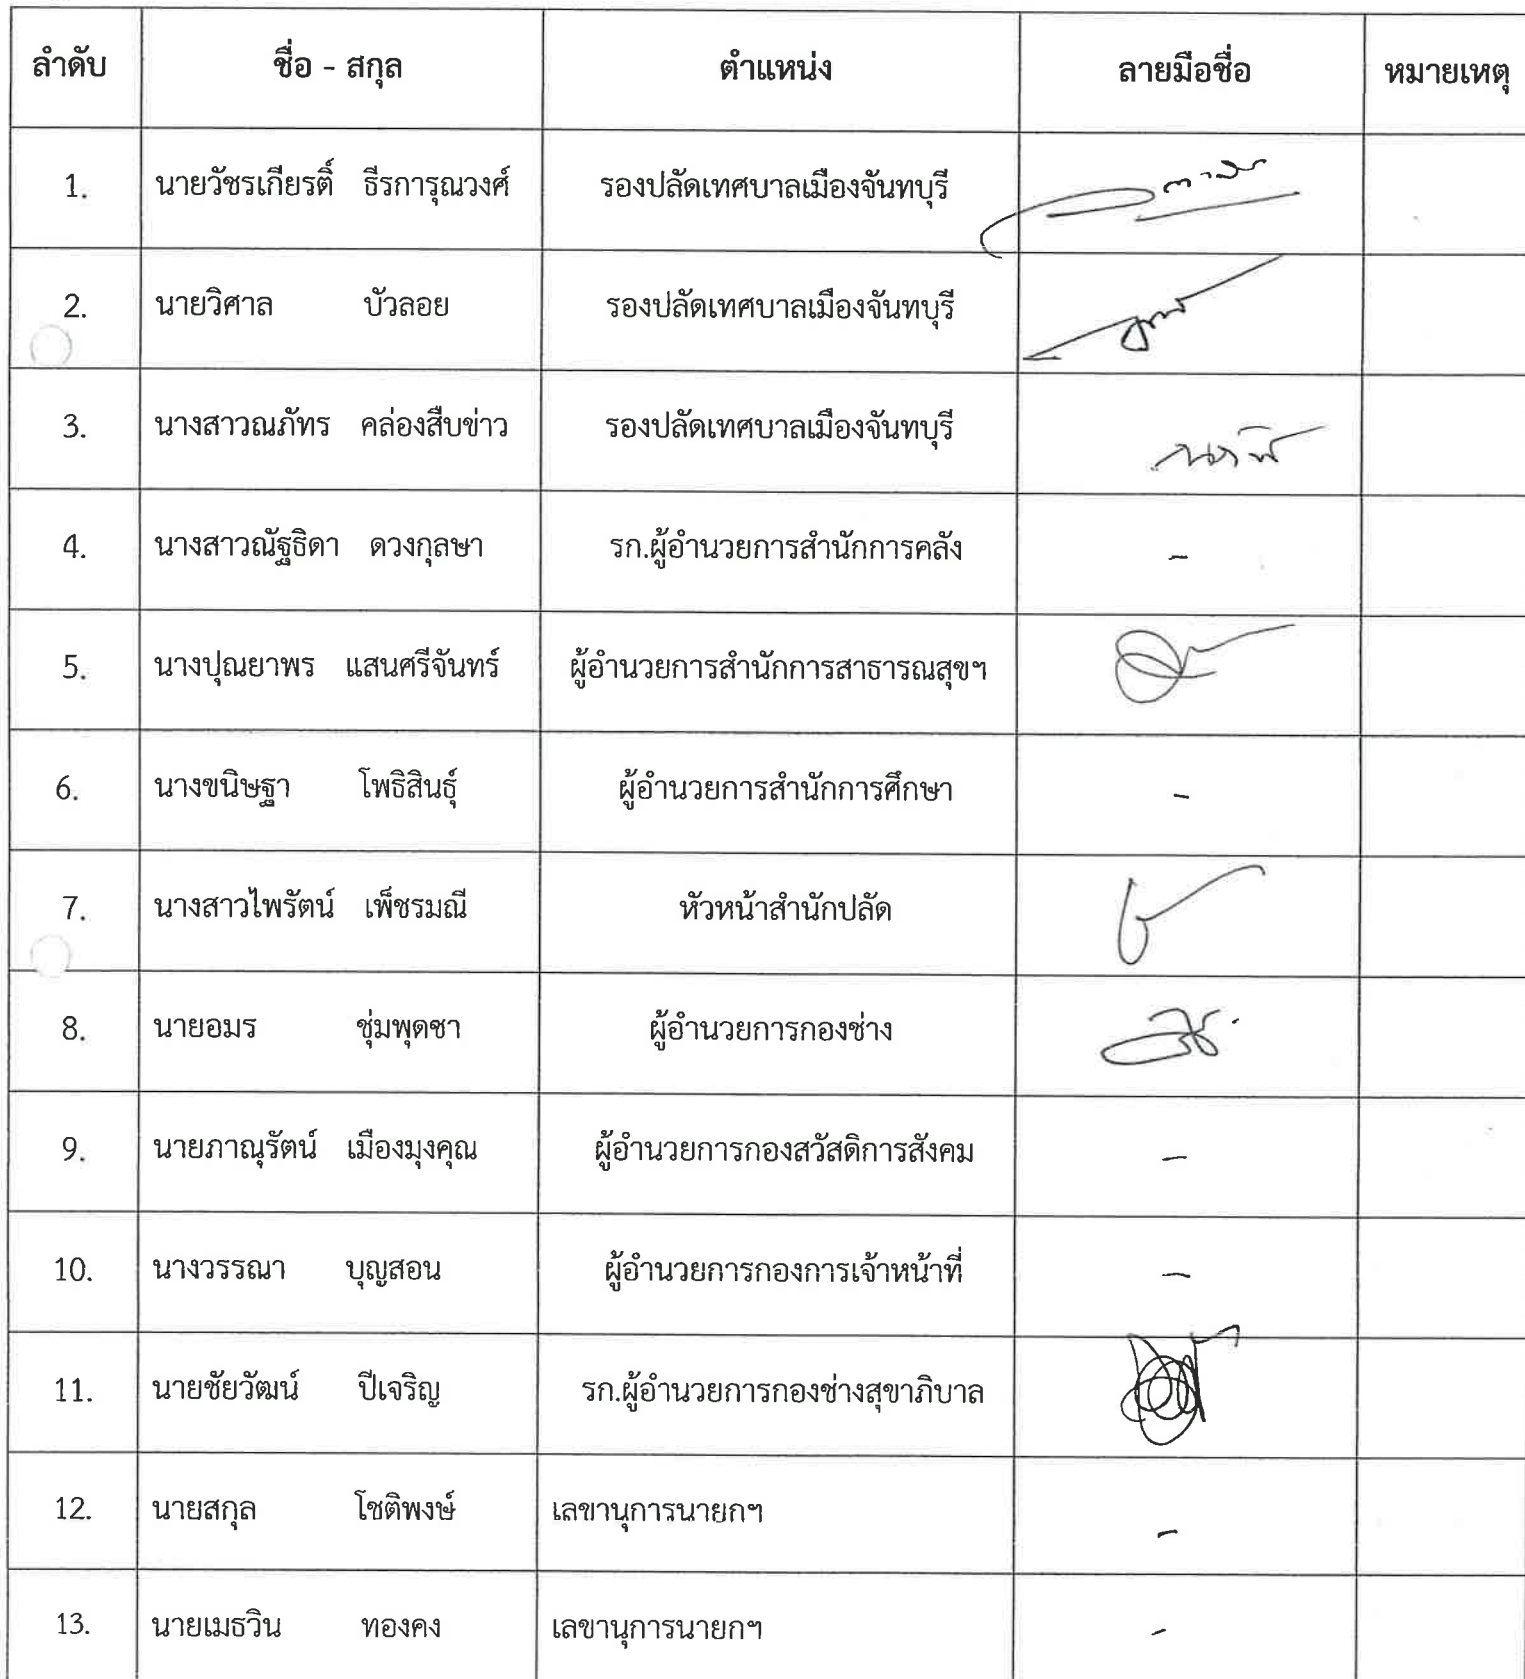 ลำดับ ชื่อ - สกุล ตำแหน่ง ลายมือชื่อ หมายเหตุ
1. นายวัชรเกียรติ์ ธีรการุณวงศ์ รองปลัดเทศบาลเมืองจันทบุรี
2. นายวิศาล บัวลอย รองปลัดเทศบาลเมืองจันทบุรี
3. นางสาวณภัทร คล่องสืบข่าว รองปลัดเทศบาลเมืองจันทบุรี
4. นางสาวณัฐธิดา ดวงกุลษา รก.ผู้อำนวยการสำนักการคลัง -
5. นางปุณยาพร แสนศรีจันทร์ ผู้อำนวยการสำนักการสาธารณสุขฯ
6. นางขนิษฐา โพธิสินธุ์ ผู้อำนวยการสำนักการศึกษา -
7. นางสาวไพรัตน์ เพ็ชรมณี หัวหน้าสำนักปลัด
8. นายอมร ชุ่มพุดซา ผู้อำนวยการกองช่าง
9. นายภาณุรัตน์ เมืองมุงคุณ ผู้อำนวยการกองสวัสดิการสังคม -
10. นางวรรณา บุญสอน ผู้อำนวยการกองการเจ้าหน้าที่ -
11. นายชัยวัฒน์ ปีเจริญ รก.ผู้อำนวยการกองช่างสุขาภิบาล
12. นายสกุล โชติพงษ์ เลขานุการนายกฯ -
13. นายเมธวิน ทองคง เลขานุการนายกฯ -